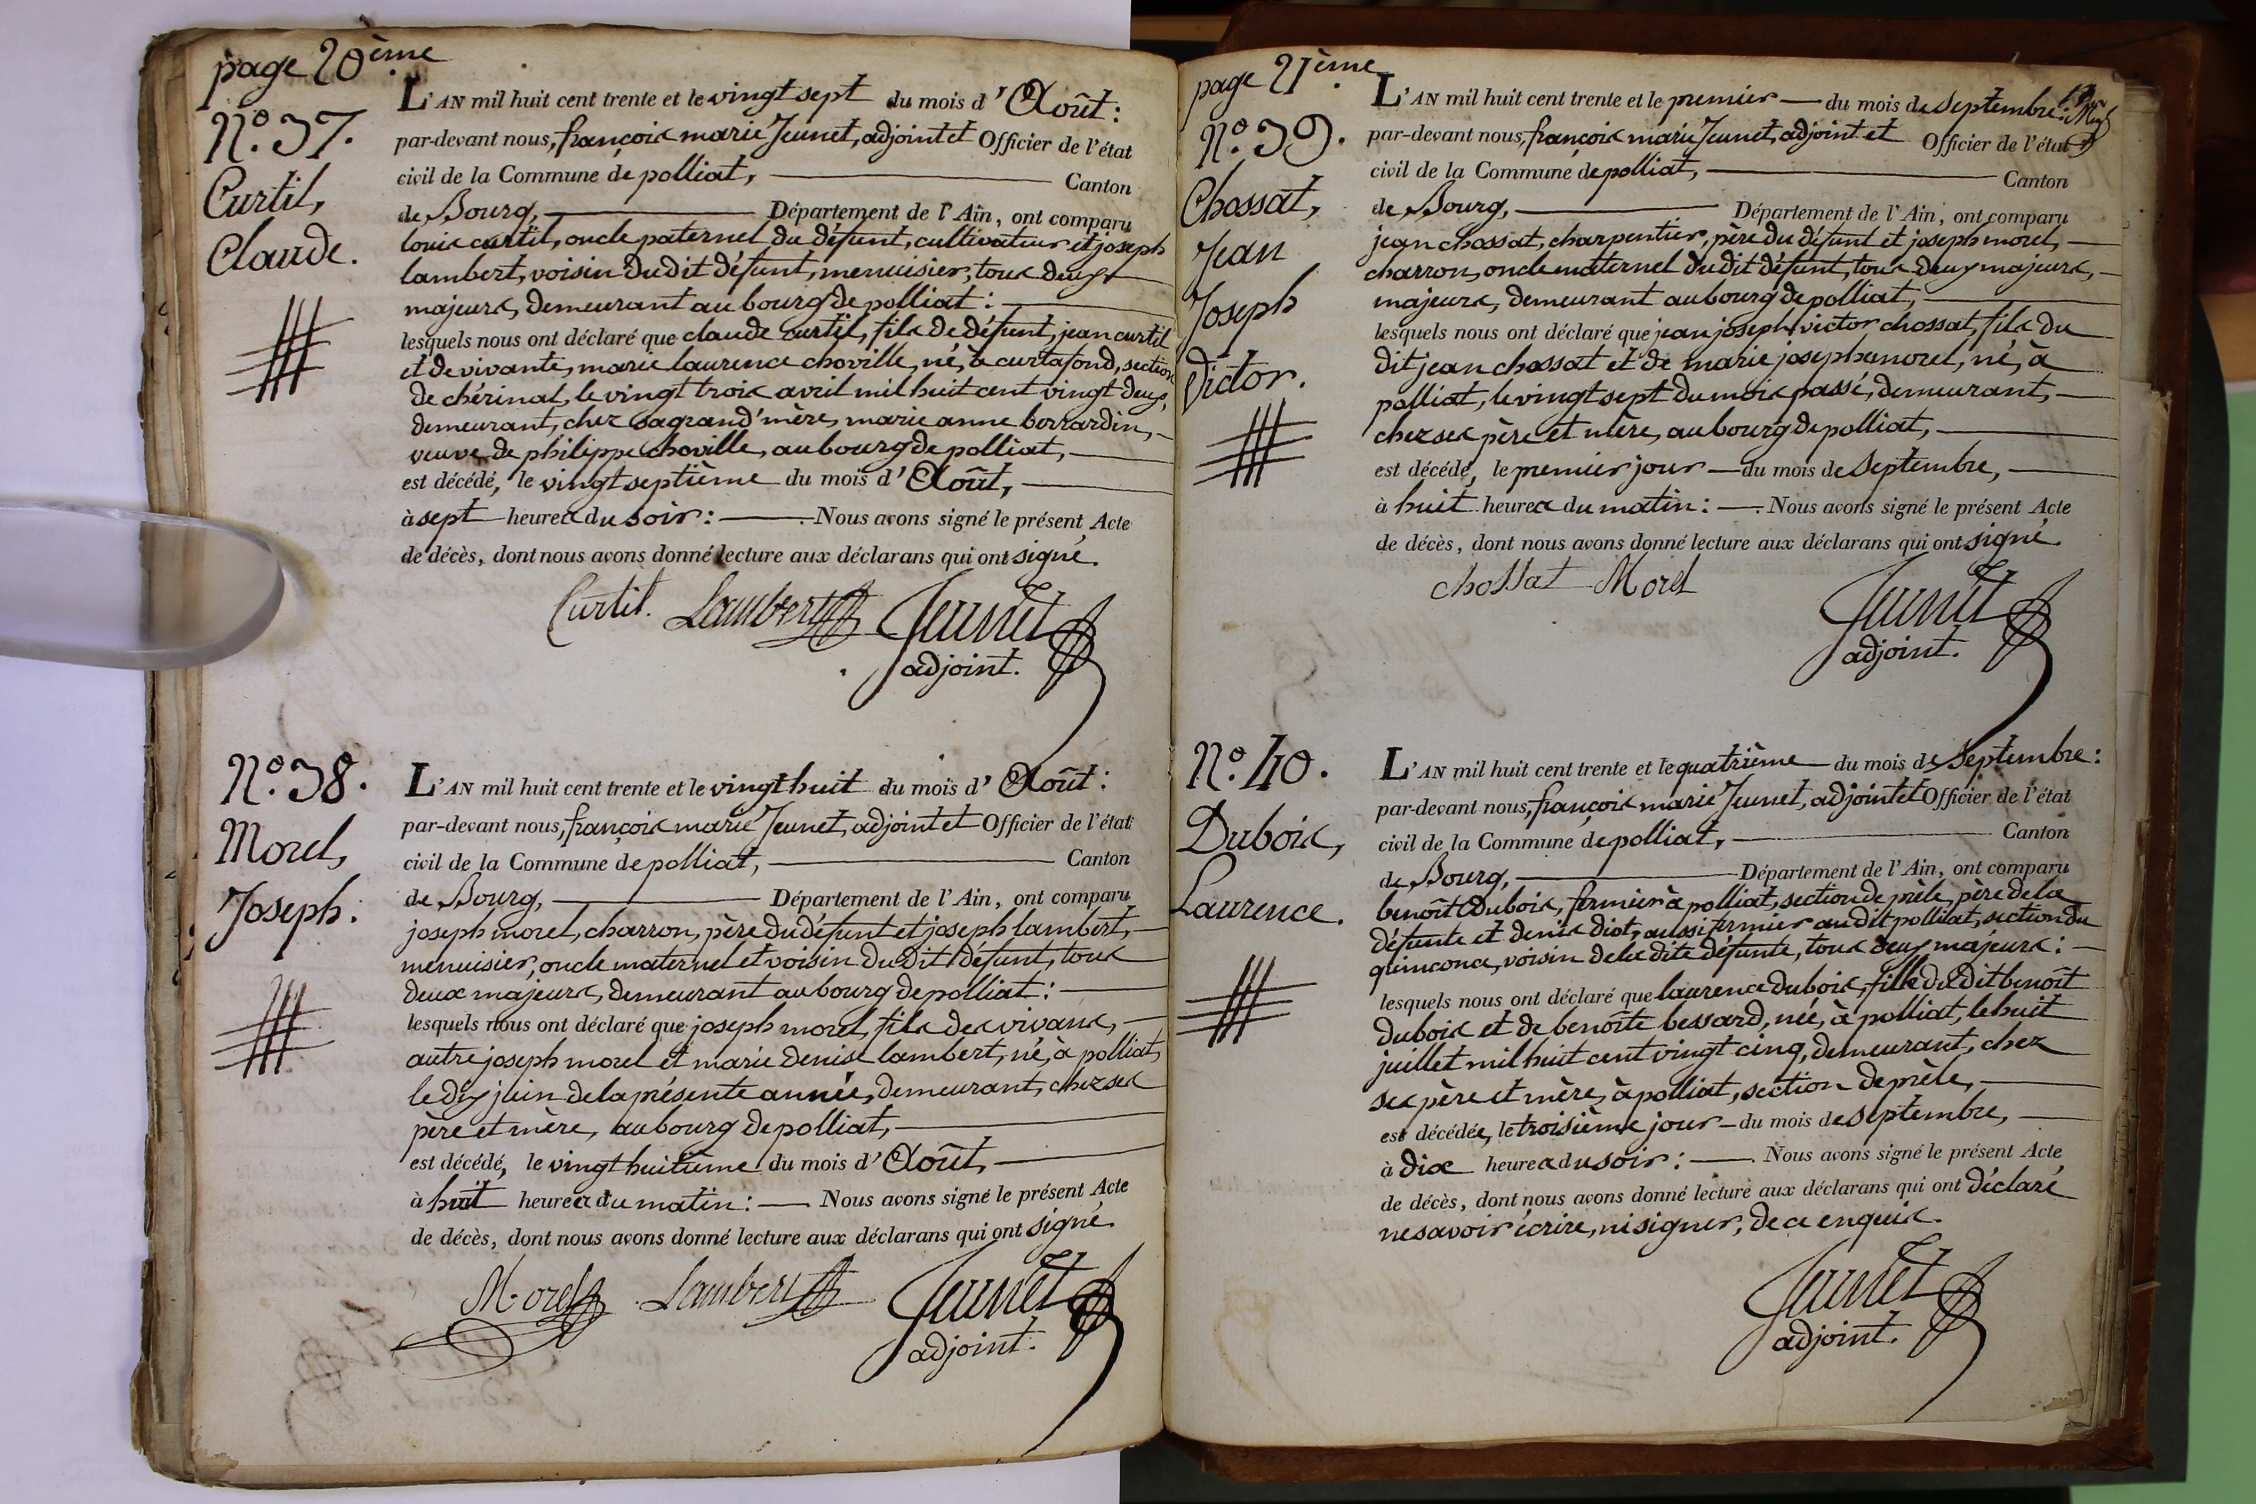 page 20ème
N.º 37.
Curtil,
Claude.
L'AN mil huit cent trente et le vingt sept du mois d'Août:
par-devant nous, françois marie Jeunet, adjoint et Officier de l'état
civil de la Commune de polliat, Canton
de Bourg, Département de l'Ain, ont comparu
louis curtil, oncle paternel du défunt, cultivateur et joseph
lambert, voisin du dit défunt, menuisier, tous deux
majeurs, demeurant au bourg de polliat:
lesquels nous ont déclaré que claude curtil, fils de défunt, jean curtil
et de vivante, marie laurence choville, né, à curtafond, section
de chérinal, le vingt trois avril mil huit cent vingt deux,
demeurant, chez sa grand'mère, marie anne berrardin,
veuve de philippe choville, au bourg de polliat,
est décédé, le vingt septième du mois d'Août,
à sept heures du soir: Nous avons signé le présent Acte
de décès, dont nous avons donné lecture aux déclarans qui ont signé.
Curtil. Lambert Jeunet
adjoint.
N.º 38.
Morel,
Joseph.
L'AN mil huit cent trente et le vingt huit du mois d'Août:
par-devant nous, françois marie Jeunet, adjoint et Officier de l'état
civil de la Commune de polliat, Canton
de Bourg, Département de l'Ain, ont comparu
joseph morel, charron, père du défunt et joseph lambert,
menuisier, oncle maternel et voisin du dit défunt, tous
deux majeurs, demeurant au bourg de polliat:
lesquels nous ont déclaré que joseph morel, fils des vivans,
autre joseph morel et marie denise lambert, né, à polliat,
le dix juin de la présente année, demeurant, chez ses
père et mère, au bourg de polliat,
est décédé, le vingt huitième du mois d'Août,
à huit heures du matin: Nous avons signé le présent Acte
de décès, dont nous avons donné lecture aux déclarans qui ont signé.
Morel Lambert Jeunet
adjoint.
page 21ème
N.º 39.
Chossat,
Jean
Joseph
Victor.
L'AN mil huit cent trente et le premier du mois de septembre:
par-devant nous, françois marie Jeunet, adjoint et Officier de l'état
civil de la Commune de polliat, Canton
de Bourg, Département de l'Ain, ont comparu
jean chossat, charpentier, père du défunt et joseph morel,
charron, oncle maternel du dit défunt, tous deux majeurs,
majeurs, demeurant au bourg de polliat,
lesquels nous ont déclaré que jean joseph victor chossat, fils du
dit jean chossat et de marie josephe morel, né, à
polliat, le vingt sept du mois passé, demeurant,
chez ses père et mère, au bourg de polliat,
est décédé, le premier jour du mois de septembre,
à huit heures du matin: Nous avons signé le présent Acte
de décès, dont nous avons donné lecture aux déclarans qui ont signé.
chossat Morel
Jeunet
adjoint.
N.º 40.
Dubois,
Laurence.
L'AN mil huit cent trente et le quatrième du mois de Septembre:
par-devant nous, françois marie Jeunet, adjoint et Officier de l'état
civil de la Commune de polliat, Canton
de Bourg, Département de l'Ain, ont comparu
benoît Dubois, fermier à polliat, section de prèle, père de la
défunte et denis diot, aussi fermier au dit polliat, section du
quinconce, voisin de la dite défunte, tous deux majeurs:
lesquels nous ont déclaré que laurence dubois, fille du dit benoît
dubois et de benoîte bessard, née, à polliat, le huit
juillet mil huit cent vingt cinq, demeurant, chez
ses père et mère, à polliat, section de prèle,
est décédée, le troisième jour du mois de septembre,
à dix heures du soir: Nous avons signé le présent Acte
de décès, dont nous avons donné lecture aux déclarans qui ont déclaré
ne savoir écrire, ni signer, de ce enquis.
Jeunet
adjoint.